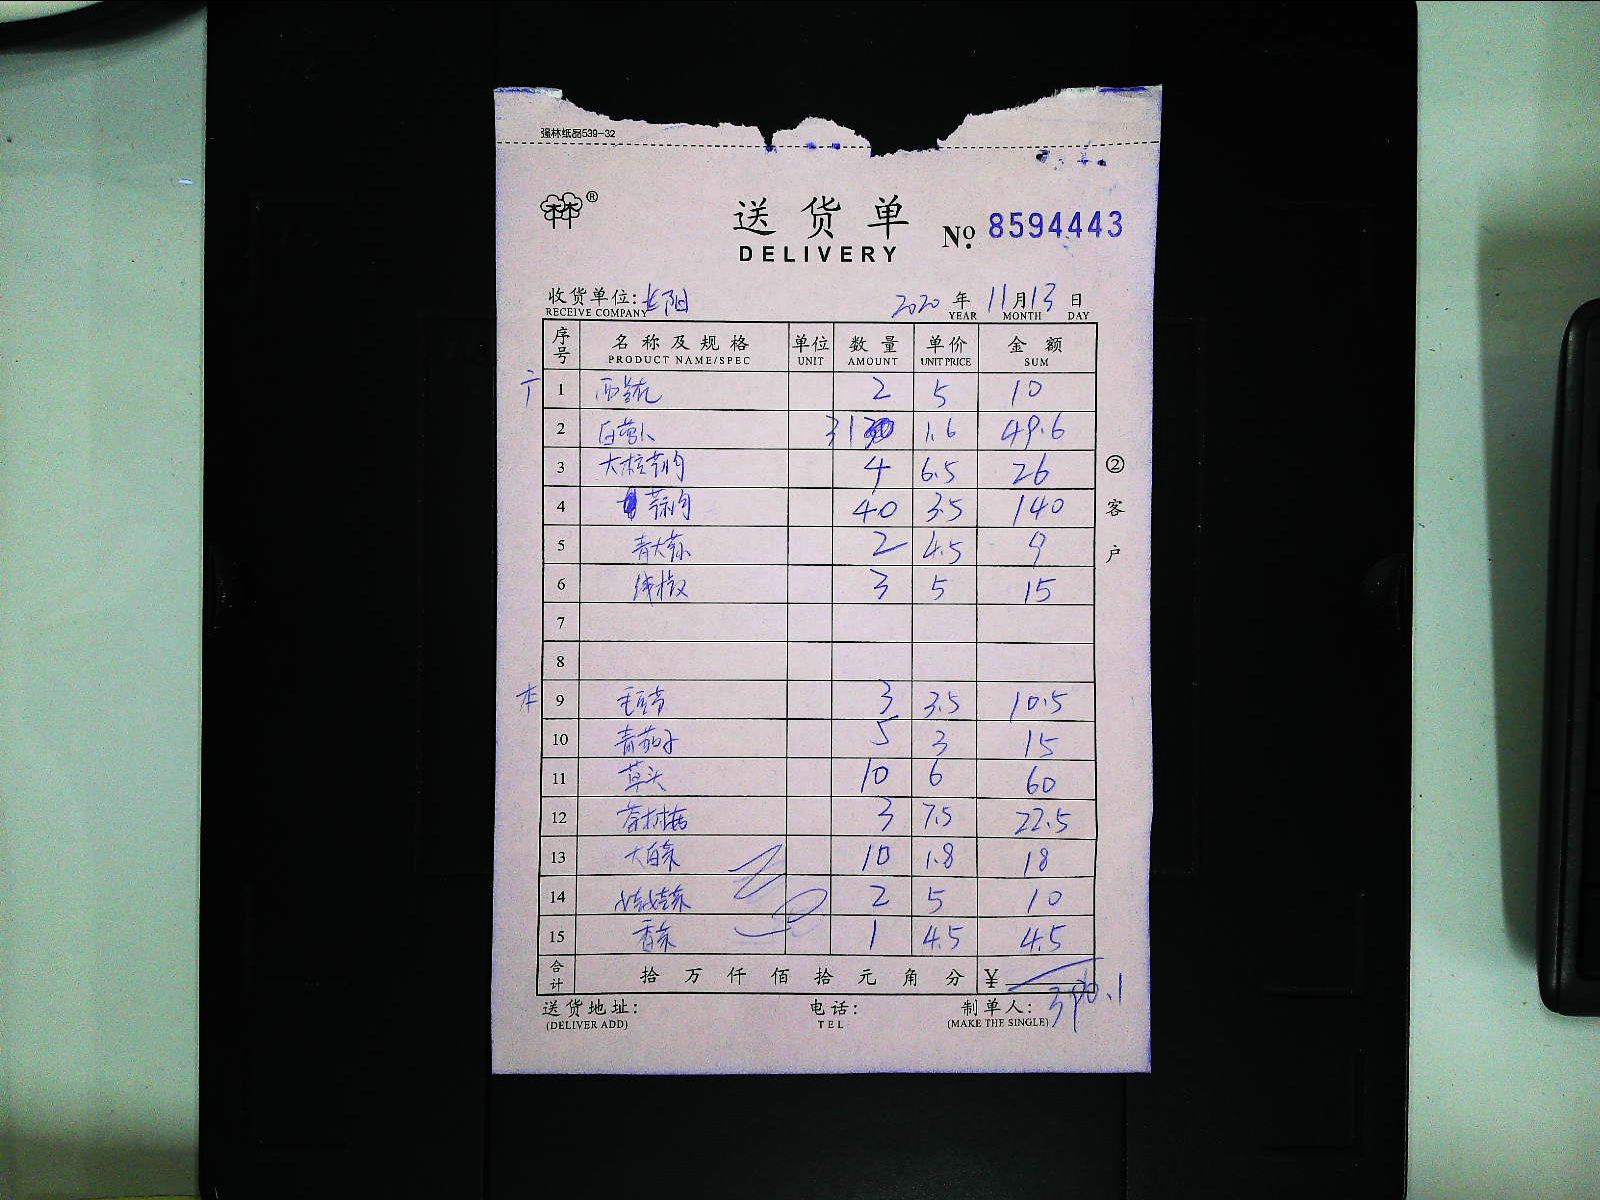 强林纸品539-32
林林 ®
送货单 № 8594443
DELIVERY
收货单位: 长阳 2020 年 11 月 13 日
RECEIVE COMPANY YEAR MONTH DAY
序号 名称及规格 单位 数量 单价 金额
PRODUCT NAME/SPEC UNIT AMOUNT UNIT PRICE SUM
1 2 5 10
2 白萝卜 31 1.6 49.6
3 4 6.5 26
4 40 3.5 140
5 青大蒜 2 4.5 9
6 线椒 3 5 15
7
8
9 毛豆节 3 3.5 10.5
10 青茄子 5 3 15
11 草头 10 6 60
12 茶树菇 3 7.5 22.5
13 大白菜 10 1.8 18
14 娃娃菜 2 5 10
15 香菜 1 4.5 4.5
合计 拾万仟佰拾元角分 ¥
390.1
送货地址: 电话: 制单人:
(DELIVER ADD) TEL (MAKE THE SINGLE)
②客户